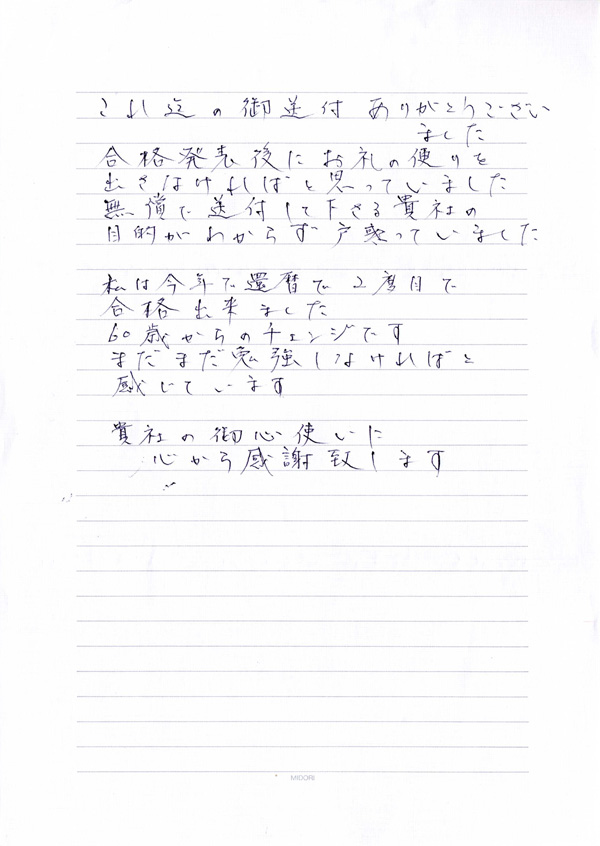 これ迄の御送付ありがとうござい
ました
合格発表後にお礼の便りを
出さなければと思っていました
無償で送付して下さる貴社の
目的がわからず戸惑っていました
私は今年で還暦で2度目で
合格出来ました
60歳からのチェンジです
まだまだ勉強しなければと
感じています
貴社の御心使いに
心から感謝致します
MIDORI